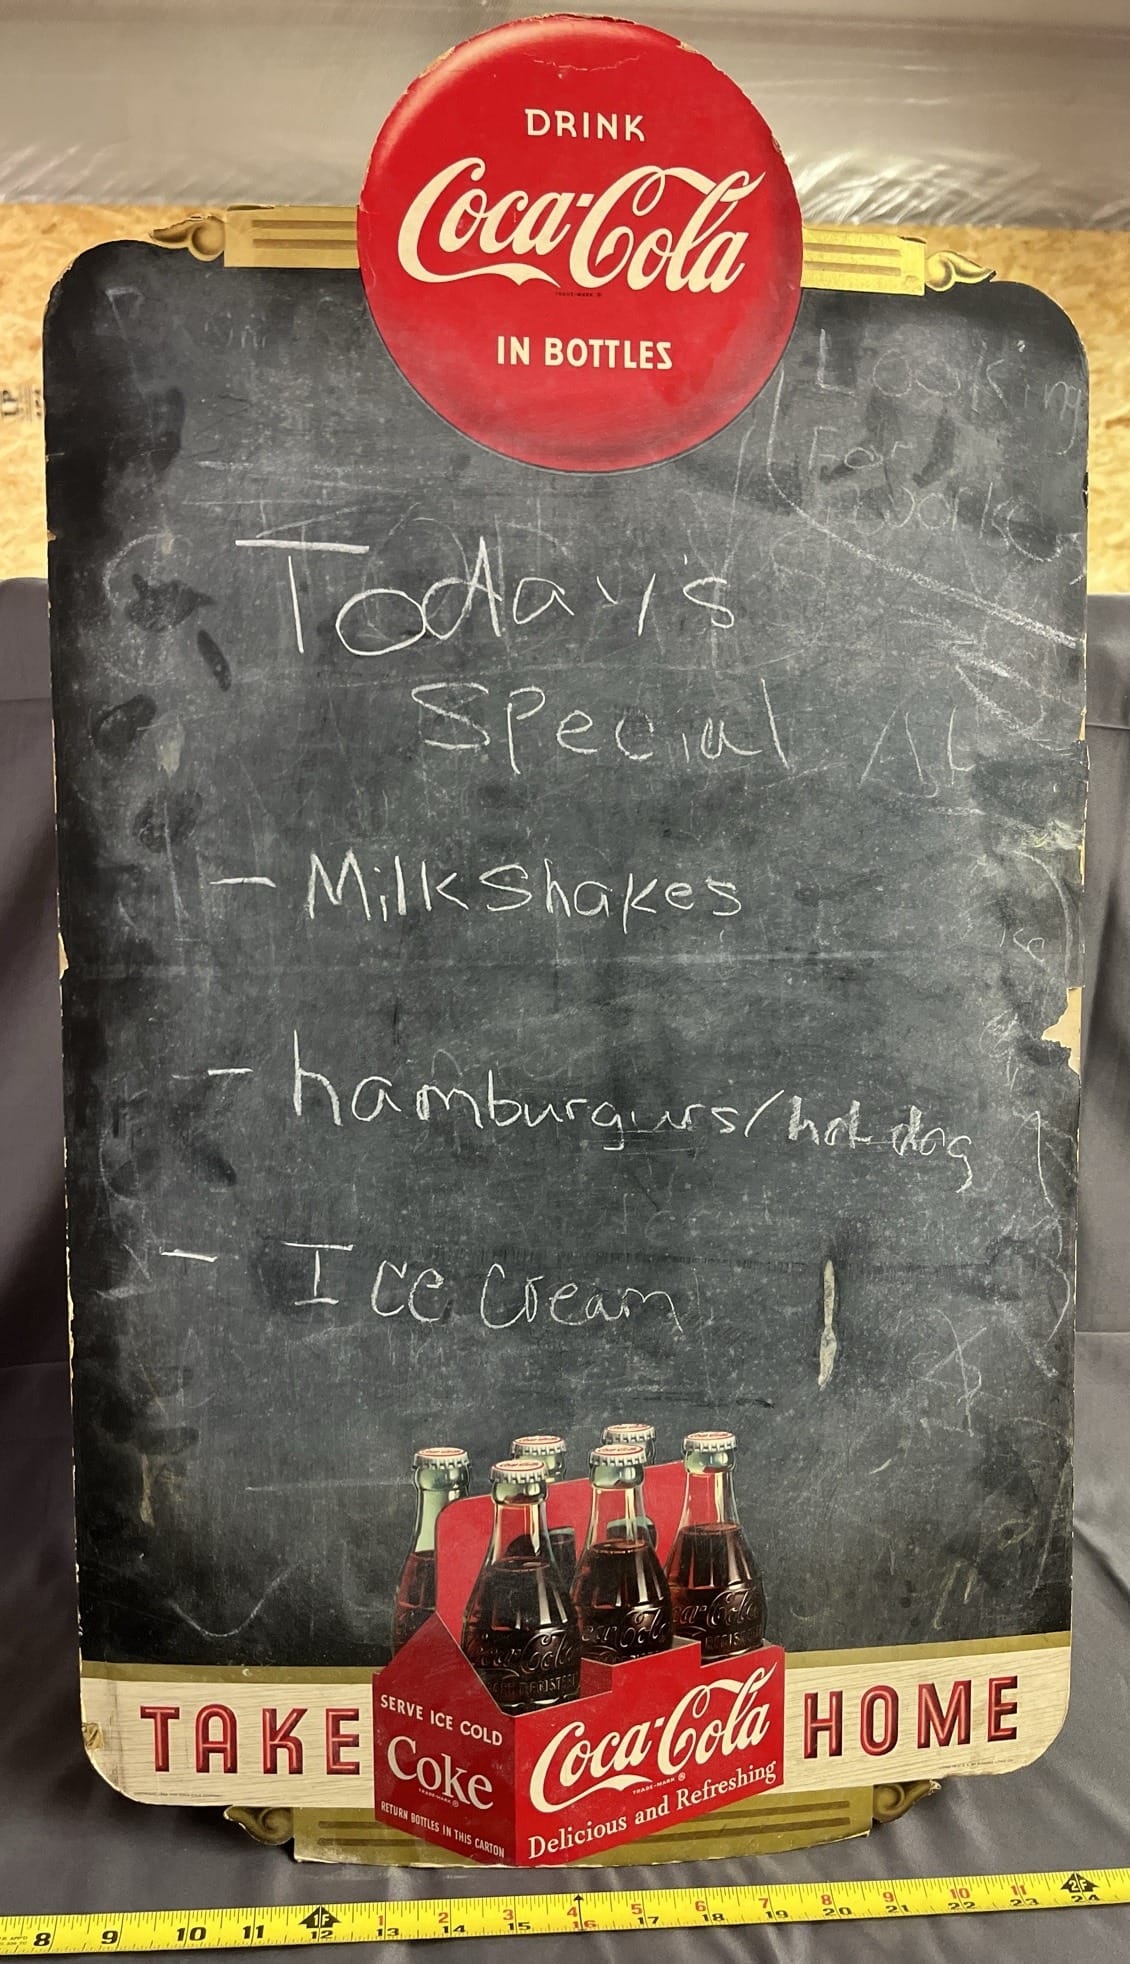 DRINK
Coca-Cola
TRADE-MARK ®
IN BOTTLES
Looking
For
Today's
Special
- MilkShakes
- hamburgurs/hot dog
- Ice Cream
TAKE
HOME
SERVE ICE COLD
Coke
TRADE-MARK ®
RETURN BOTTLES IN THIS CARTON
Coca-Cola
TRADE-MARK ®
Delicious and Refreshing
8 9 10 11 1F 1 2 3 4 5 6 7 8 9 10 11 2F
12 13 14 15 16 17 18 19 20 21 22 23 24